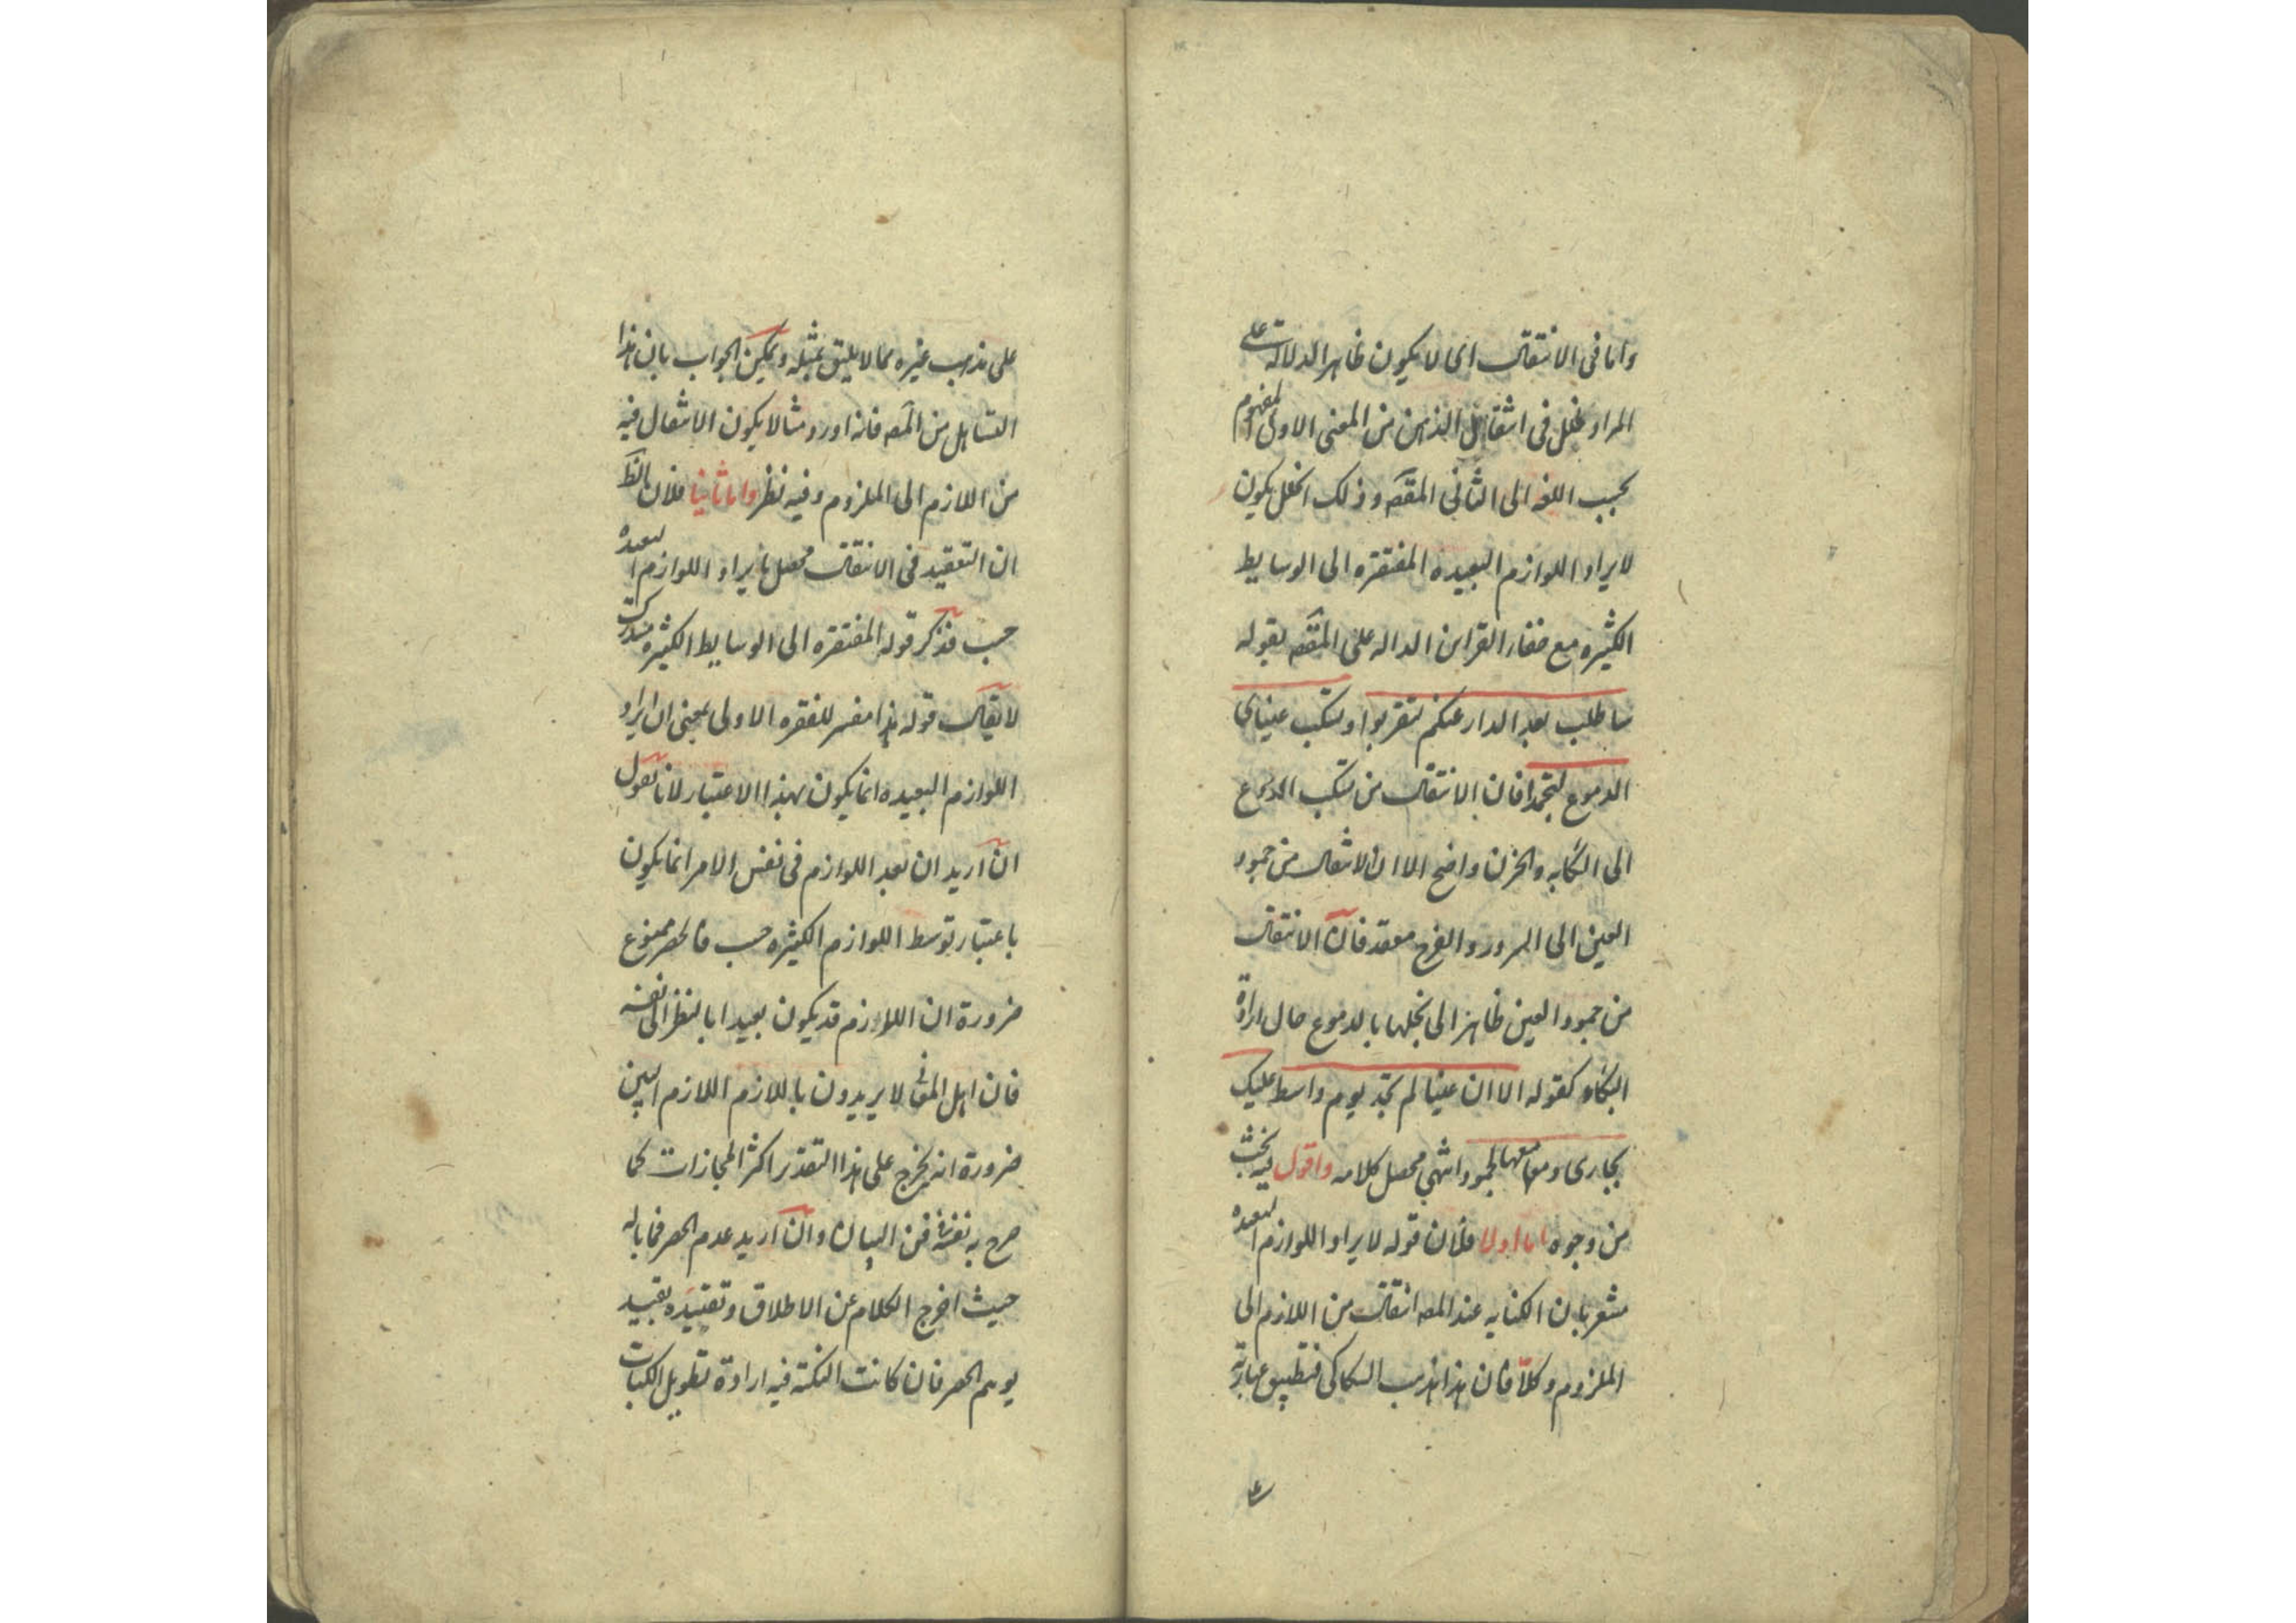 واما فى الانتقال اى لا يكون ظاهر الدلالة على
المراد لخلل فى انتقال الذهن من المعنى الاول المفهوم
بحسب اللغه الى الثانى المقصه وذلك الخلل يكون
لايراد اللوازم البعيده المفتقره الى الوسايط
الكثيره مع خفاء القراين الداله على المقصه بقوله
ساطلب بعد الدار عنكم لتقربوا وتسكب عيناى
الدموع لتجمدا فان الانتقال من تسكب الدموع
الى الكآبه والحزن واضح الا ان الانتقال من جمود
العين الى السرور والفرح معقد فان الانتقال
من جمود العين ظاهر الى بخلها بالدموع حال ارادة
البكاء كقوله الا ان عينا لم تجد يوم واسط عليك
بجارى دمعها لجمود انتهى محصل كلامه واقول فيه بحث
من وجوه اما اولا فلان قوله لايراد اللوازم البعيده
مشعر بان الكنايه عند المصه انتقال من اللازم الى
الملزوم وكلا فان هذا مذهب السكاكى فتطبيق عبارته
على
على مذهب غيره مما لا يليق بمثله ويمكن الجواب بان هذا
التساهل من المصه فانه اورد مثالا يكون الانتقال فيه
من اللازم الى الملزوم وفيه نظر واما ثانيا فلان الظ
ان التعقيد فى الانتقال محصل بايراد اللوازم البعيده
حسب فذكر قوله المفتقره الى الوسايط الكثيره مستدرك
لا يقال قوله هذا مفسر للفقره الاولى بمعنى ان ايراد
اللوازم البعيده انما يكون بهذا الاعتبار لانا نقول
ان اريد ان بعد اللوازم فى نفس الامر انما يكون
باعتبار توسط اللوازم الكثيره حسب فالحصر ممنوع
ضرورة ان اللوازم قد يكون بعيدا بالنظر الى نفسه
فان اهل المعانى لا يريدون باللازم اللازم البين
ضرورة انه يخرج على هذا التقدير اكثر المجازات كما
صرح به نفسه فى فن البيان وان اريد عدم الحصر فما باله
حيث اخرج الكلام عن الاطلاق وتقييده بقييد
يوهم الحصر فان كانت النكته فيه ارادة تطويل الكتاب